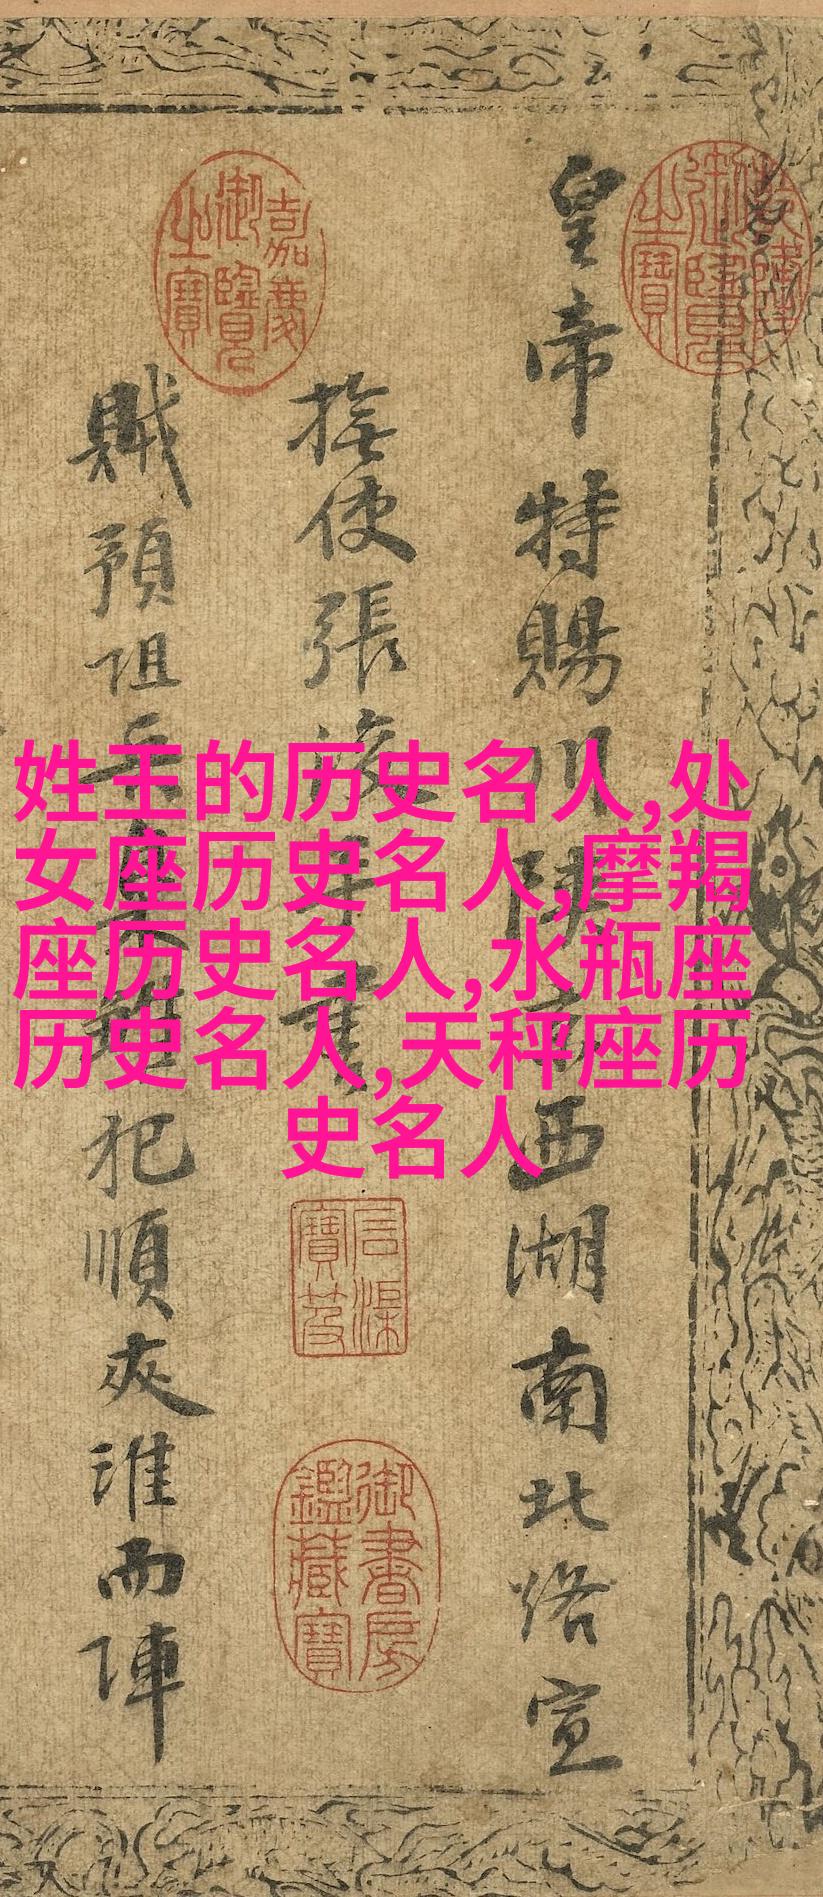 皇帝特賜川陝西湖南北路宣
撫使張浚
賊預阻兵犯順夾淮而陣
乾隆御覽之寶
嘉慶御覽之寶
石渠寶笈
御書房鑑藏寶
姓王的历史名人,处
女座历史名人,摩羯
座历史名人,水瓶座
历史名人,天秤座历
史名人